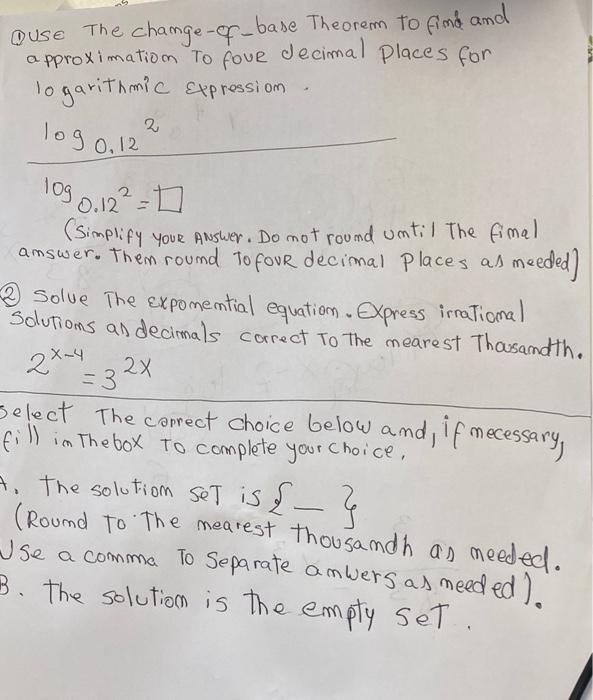 ① Use The change-of-base Theorem to find and
approximation To foue decimal places for
logarithmic Expression.
log 0.12 2
log 0.12 2 = □
(Simplify your Answer. Do not round until The final
answer. Then round To four decimal places as needed)
② Solue The exponential equation. Express irrational
Solutions as decimals correct To The nearest Thousandth.
2^x-4 = 3^2x
Select The correct choice below and, if necessary,
fill in The box To complete your choice,
A. The solution seT is { _ }
(Round To The nearest thousandh as needed.
Use a comma To Separate anwers as needed).
B. The solution is the empty seT.